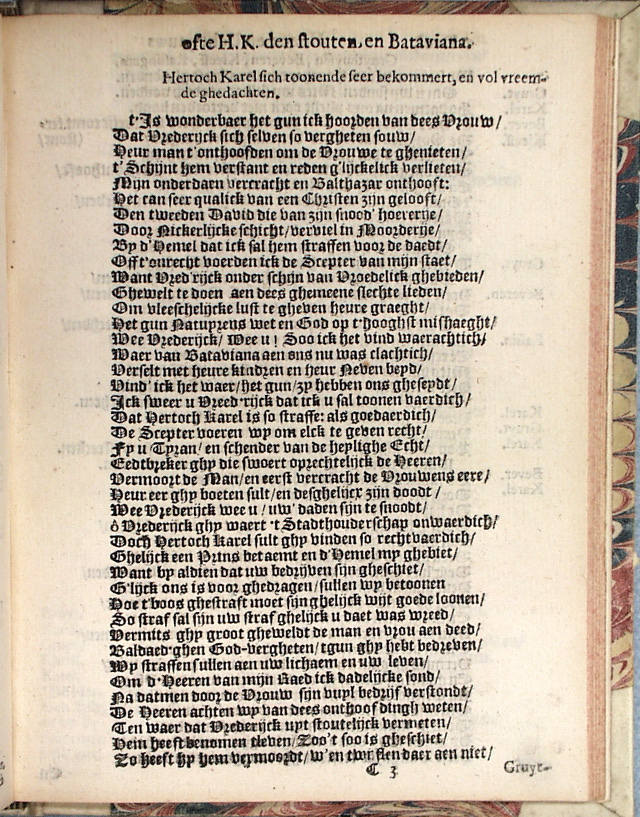 ofte H.K. den stouten, en Bataviana.
Hertoch Karel sich toonende seer bekommert, en vol vreem-
de ghedachten.
t'Is wonderbaer het gun ick hoorden van dees Vrouw/
Dat Vrederyck sich selven so vergheten souw/
Heur man t'onthoofden om de Vrouwe te ghenieten/
t'Schijnt hem verstant en reden g'lijckelick verlieten/
Mijn onderdaen vercracht en Balthazar onthooft:
Het can seer qualick van een Christen zijn gelooft/
Den tweeden David die van zijn snood' hoererije/
Door Nickerlijcke schicht/verviel in Moorderije/
By d'Hemel dat ick sal hem straffen voor de daedt/
Off t'onrecht voerden ick de Scepter van mijn staet/
Want Vred'rijck onder schijn van Vroedelick ghebieden/
Ghewelt te doen aen dees ghemeene slechte lieden/
Om vleeschelijcke lust te gheven heure graeght/
Het gun Natuyrens wet en God op t'hooghst mishaeght/
Wee Vrederijck/ Wee u! Soo ick het vind waerachtich/
Waer van Bataviana aen ons nu was clachtich/
Verselt met heure kindren en heur Neven beyd/
Vind' ick het waer/het gun/zy hebben ons gheseydt/
Ick sweer u Vreed'rijck dat ick u sal toonen vaerdich/
Dat Hertoch Karel is so straffe: als goedaerdich/
De Scepter voeren wy om elck te geven recht/
Fy u Tyran/ en schender van de heylighe Echt/
Eedtbreker ghy die swoert oprechtelijck de Heeren/
Vermoort de Man/en eerst vercracht de Vrouwens eere/
Heur eer ghy boeten sult/en desghelijcx zijn doodt/
Wee Vrederijck wee u/ uw' daden sijn te snoodt/
ô Vrederijck ghy waert 't Stadthouderschap onwaerdich/
Doch Hertoch Karel sult ghy vinden so rechtvaerdich/
Ghelijck een Prins betaemt en d'Hemel my ghebiet/
Want by aldien dat uw bedrijven sijn gheschiet/
G'lijck ons is voor ghedragen/sullen wy betoonen
Hoe t'boos ghestraft moet sijn ghelijck wijt goede loonen/
So straf sal sijn uw straf ghelijck u daet was wreed/
Vermits ghy groot gheweldt de man en vrou aen deed/
Baldaed'ghen God-vergheten/tgun ghy hebt bedreven/
Wy straffen sullen aen uw lichaem en uw leven/
Om d'Heeren van mijn Raed ick dadelijcke sond/
Na datmen door de Vrouw sijn vuyl bedrijf verstondt/
De Heeren achten wy van dees onthoofdingh weten/
Ten waer dat Vrederijck uyt stoutelijck vermeten/
Hem heeft benomen tleven/Zoo't soo is gheschiet/
Zo heeft hy hem vermoordt/w'en twisten daer aen niet/
C 3 Gruyt-